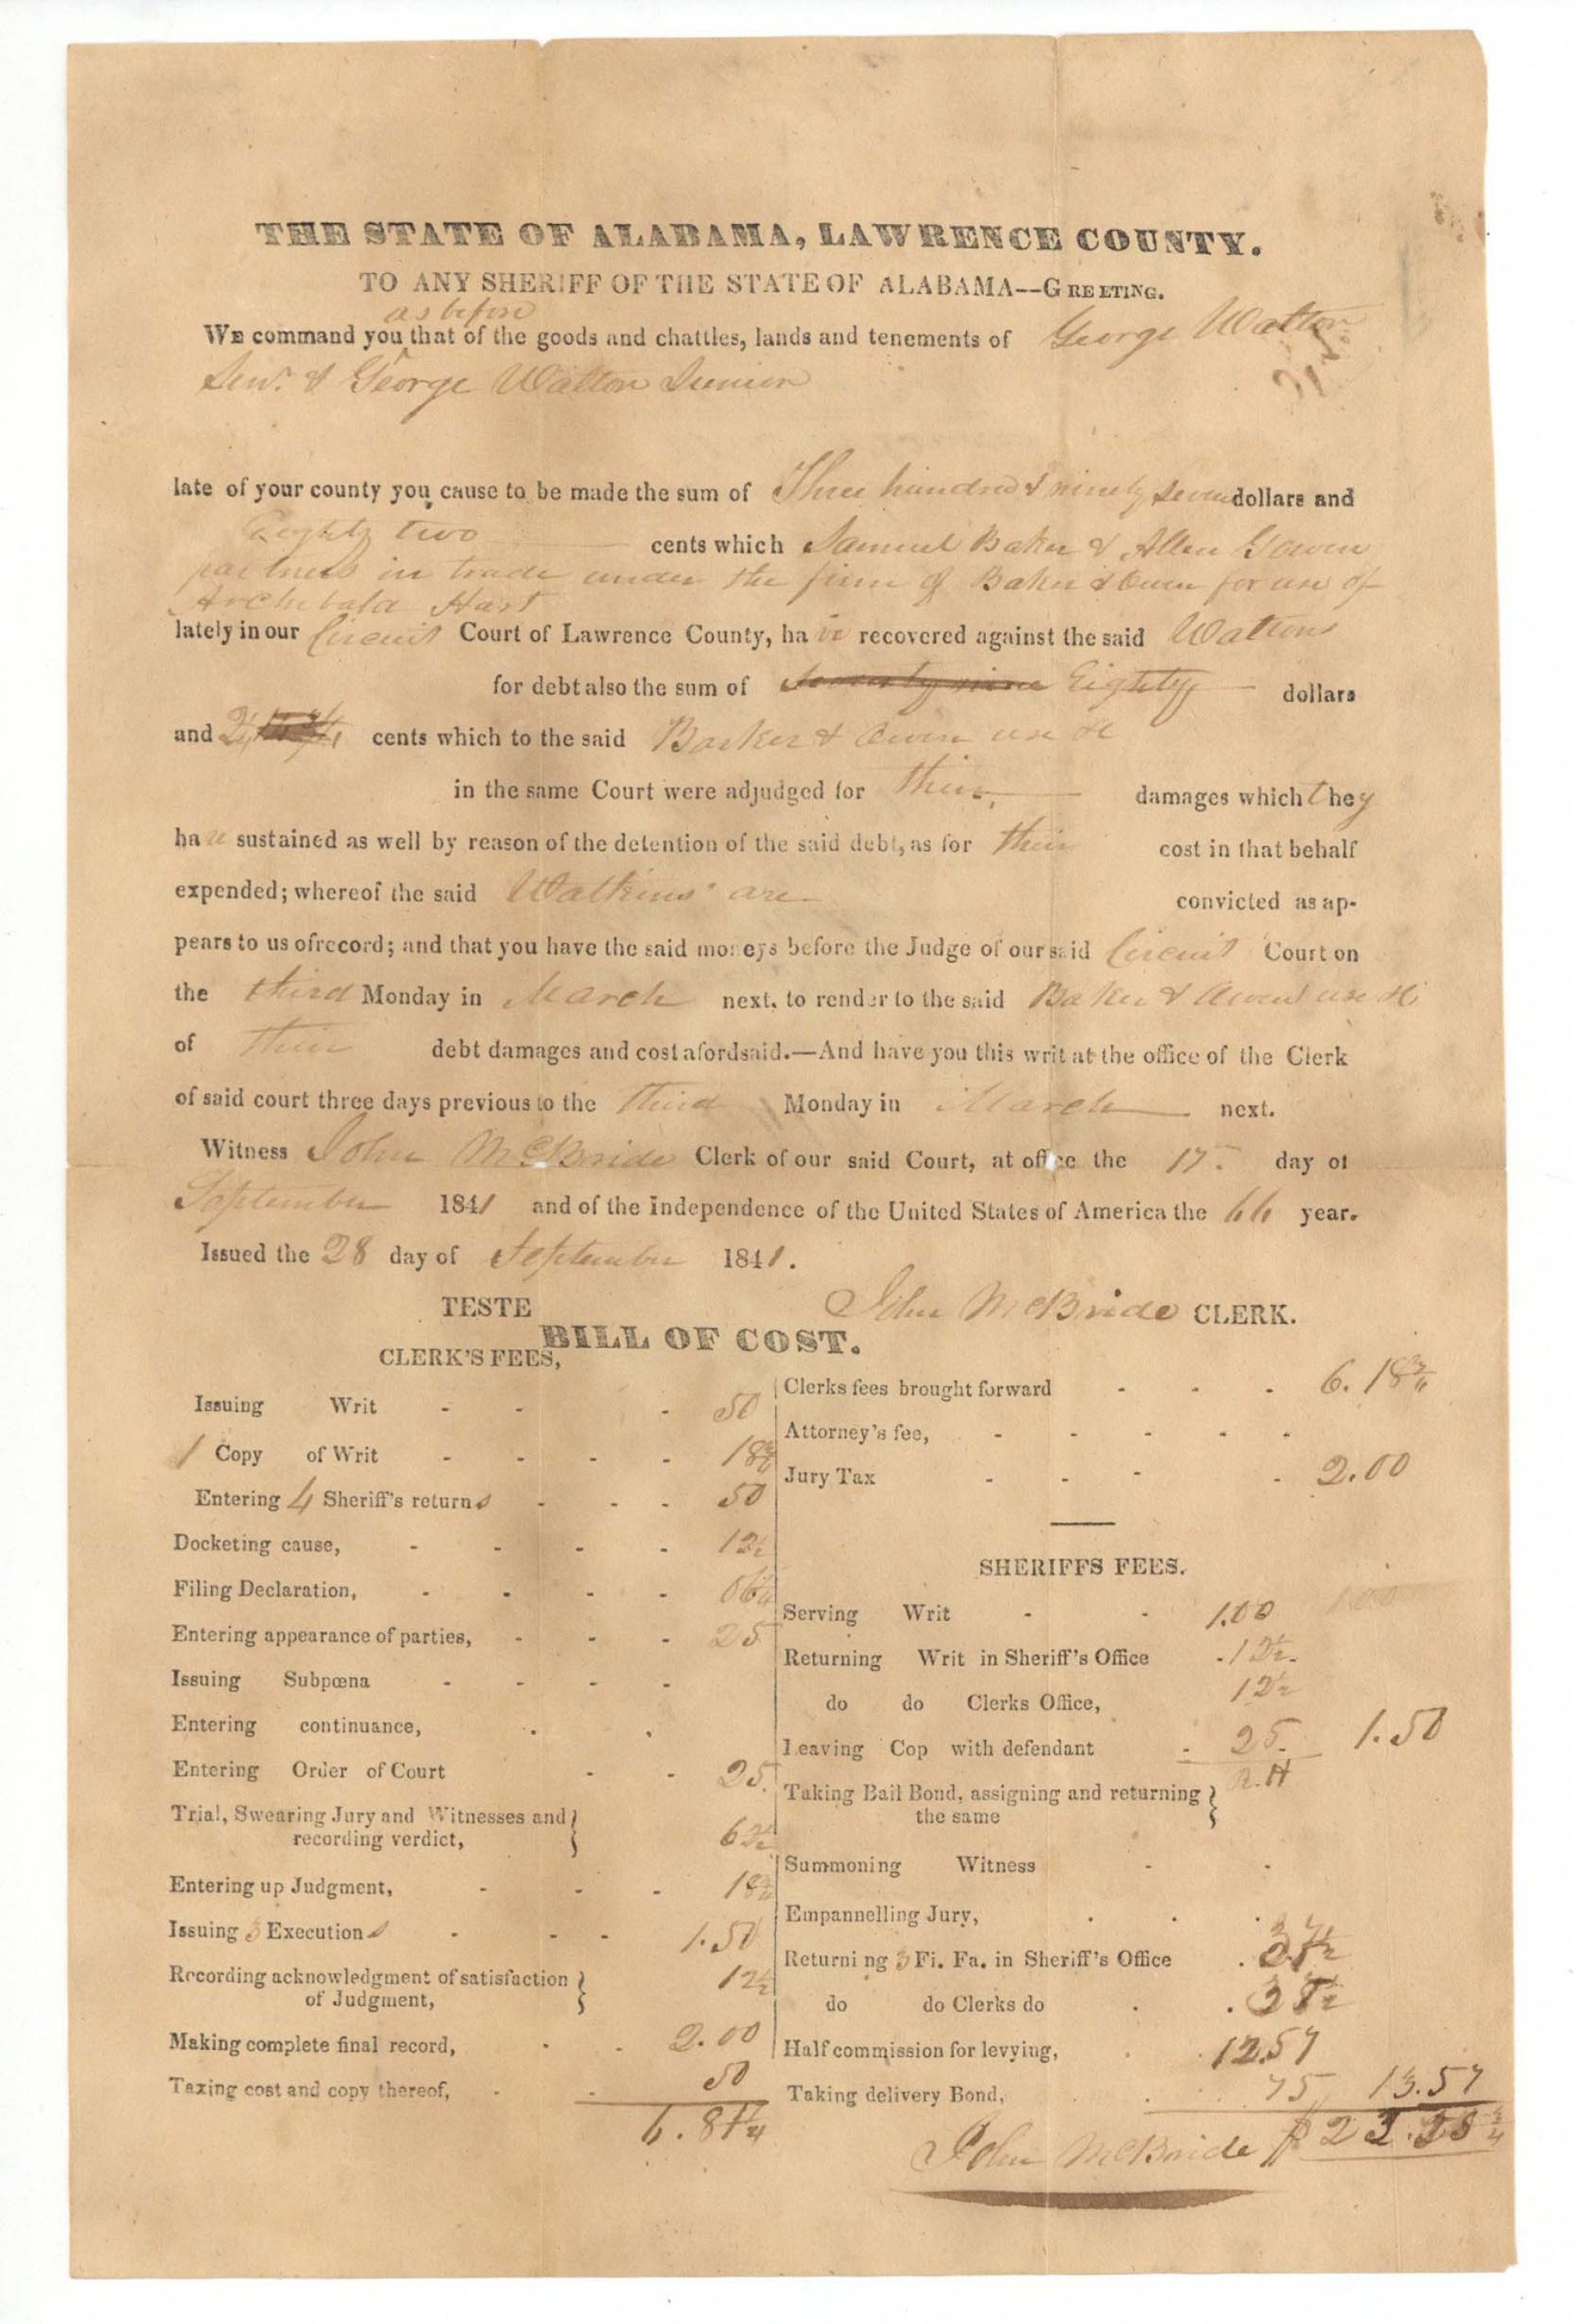 THE STATE OF ALABAMA, LAWRENCE COUNTY.
TO ANY SHERIFF OF THE STATE OF ALABAMA--GREETING.
as before
WE command you that of the goods and chattles, lands and tenements of George Walton
Senr. & George Walton Junior
late of your county you cause to be made the sum of Three hundred & ninety seven dollars and
Eighty two cents which Samuel Baker & Allen Gowen
partners in trade under the firm of Baker & Owen for use of
Archibald Hart
lately in our Circuit Court of Lawrence County, have recovered against the said Waltons
for debt also the sum of Seventy nine Eighty dollars
and cents which to the said Barker & Owen use &c
in the same Court were adjudged for their damages which they
have sustained as well by reason of the detention of the said debt, as for their cost in that behalf
expended; whereof the said Watkins are convicted as ap-
pears to us of record; and that you have the said moneys before the Judge of our said Circuit Court on
the third Monday in March next, to render to the said Baker & Owen use &c
of their debt damages and cost afordsaid.—And have you this writ at the office of the Clerk
of said court three days previous to the third Monday in March next.
Witness John McBride Clerk of our said Court, at office the 17. day of
September 1841 and of the Independence of the United States of America the 66 year.
Issued the 28 day of September 1841.
TESTE John McBride CLERK.
BILL OF COST.
CLERK'S FEES,
Issuing Writ - - - 50
1 Copy of Writ - - - - 18¾
Entering 4 Sheriff's returns - - - 50
Docketing cause, - - - - 12½
Filing Declaration, - - - - 06¼
Entering appearance of parties, - - - 25
Issuing Subpœna - - - -
Entering continuance, . .
Entering Order of Court - - 25.
Trial, Swearing Jury and Witnesses and }
recording verdict, 62½
Entering up Judgment, - - - 18¾
Issuing 3 Executions - - - 1.50
Recording acknowledgment of satisfaction }
of Judgment, 12½
Making complete final record, . . 2.00
Taxing cost and copy thereof, - - 50
6.81¼
Clerks fees brought forward - - - 6.18¾
Attorney's fee, - - - - -
Jury Tax - - - - 2.00
SHERIFFS FEES.
Serving Writ - - 1.00 100
Returning Writ in Sheriff's Office .12½
do do Clerks Office, 12½
Leaving Cop with defendant - 25. 1.50
R.H
Taking Bail Bond, assigning and returning }
the same
Summoning Witness - -
Empannelling Jury, . . .
Returning 3 Fi. Fa. in Sheriff's Office . 37½
do do Clerks do . . 37½
Half commission for levying, . . 12.57
Taking delivery Bond, . . 75 13.57
John McBride